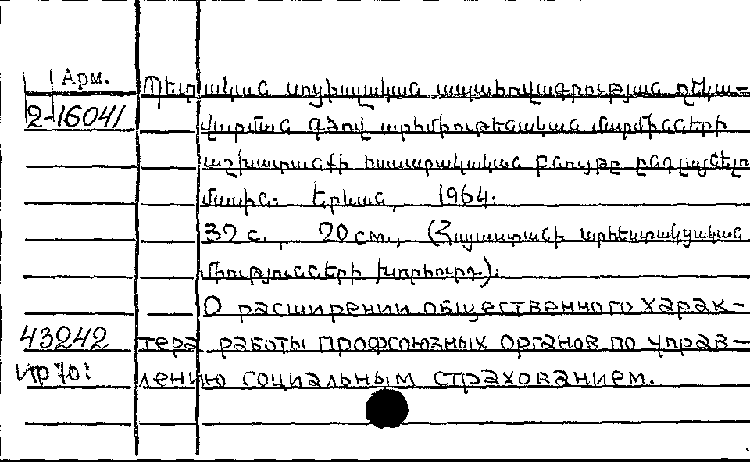 Арм.
Պետական սոցիալական ապահովագրության ղեկա-
2-16041
վարման գծով արհմիութենական մարմինների
աշխատանքի հասարակական բնույթը ընդլայնելու
մասին. Երևան, 1964.
32 с., 20 см., (Հայաստանի արհեստակցական
միությունների խորհուրդ).
О расширении общественного харак-
43242
тера работы профсоюзных органов по управ-
лению социальным страхованием.